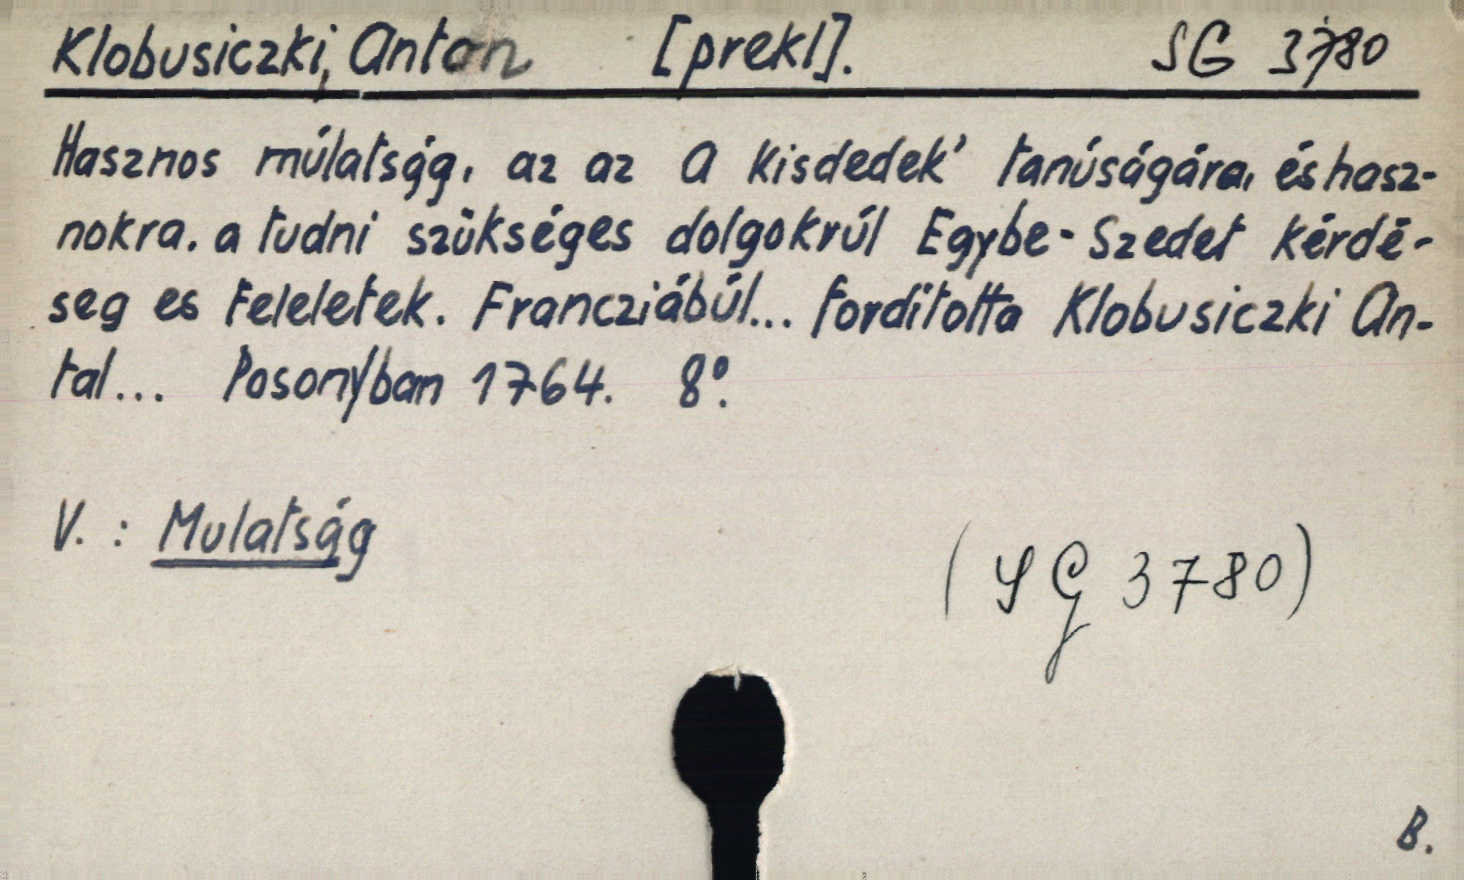 Klobusiczki, Anton [prekl]. SG 3780
Hasznos múlatság, az az A Kisdedek' tanúságára, és hasz-
nokra. a tudni szükséges dolgokrúl Egybe-Szedet kérdé-
seg es Feleletek. Francziábúl... fordította Klobusiczki An-
tal... Posonyban 1764. 8º.
V. : Mulatság
(SG 3780)
B.